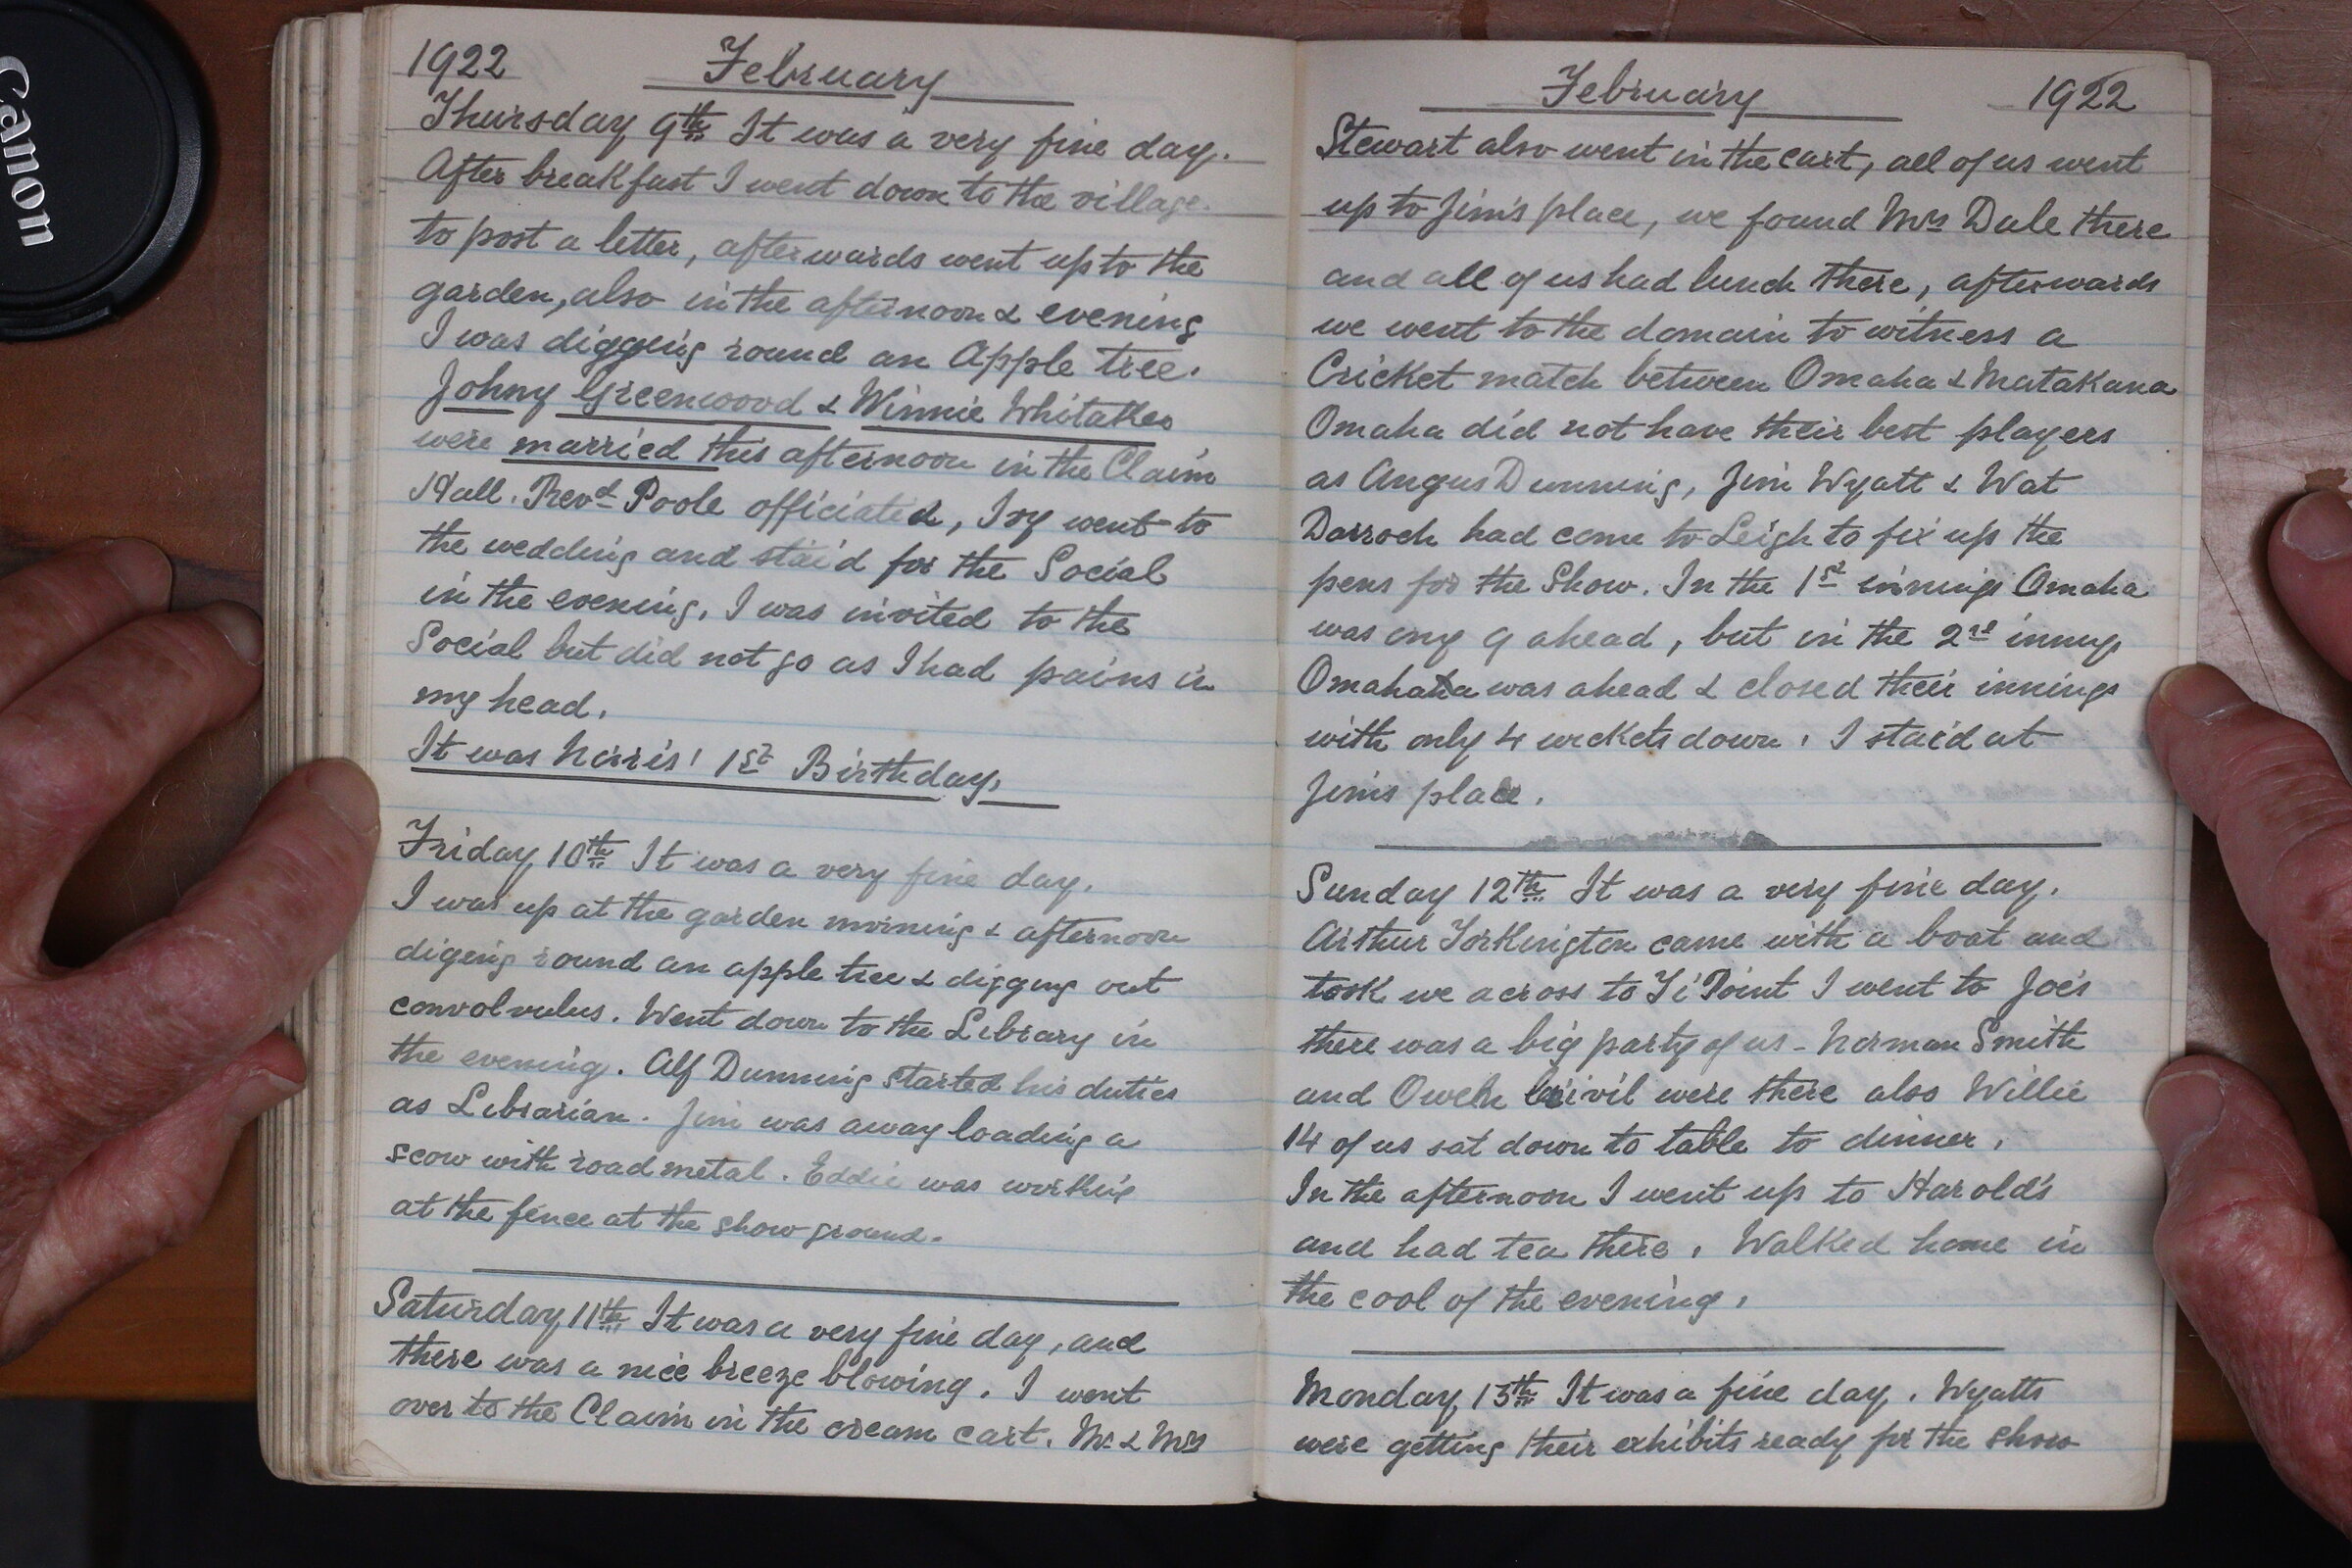 Canon
1922 February
Thursday 9th It was a very fine day.
After breakfast I went down to the village
to post a letter, afterwards went up to the
garden, also in the afternoon & evening
I was digging round an Apple tree.
Johny Greenwood & Winnie Whitaker
were married this afternoon in the Claim
Hall. Revd Poole officiated, Ivy went to
the wedding and staid for the Social
in the evening, I was invited to the
Social but did not go as I had pains in
my head.
It was Norris' 1st Birthday,
Friday 10th It was a very fine day.
I was up at the garden morning & afternoon
diging round an apple tree & digging out
convolvulus. Went down to the Library in
the evening. Alf Dunning started his duties
as Librarian. Jim was away loading a
scow with road metal. Eddie was working
at the fence at the show ground.
Saturday 11th It was a very fine day, and
there was a nice breeze blowing. I went
over to the Claim in the cream cart. Mr & Mrs
February 1922
Stewart also went in the cart, all of us went
up to Jim's place, we found Mrs Dale there
and all of us had lunch there, afterwards
we went to the domain to witness a
Cricket match between Omaha & Matakana
Omaha did not have their best players
as Angus Dunning, Jim Wyatt & Wat
Darroch had come to Leigh to fix up the
pens for the Show. In the 1st innings Omaha
was ony 9 ahead, but in the 2nd innings
Omaha was ahead & closed their innings
with only 4 wickets down. I staid at
Jim's place.
Sunday 12th It was a very fine day.
Arthur Torkington came with a boat and
took we across to Ti Point I went to Joe's
there was a big party of us - Norman Smith
and Owen were there also Willie
14 of us sat down to table to dinner.
In the afternoon I went up to Harold's
and had tea there. Walked home in
the cool of the evening.
Monday 13th It was a fine day. Wyatts
were getting their exhibits ready for the show